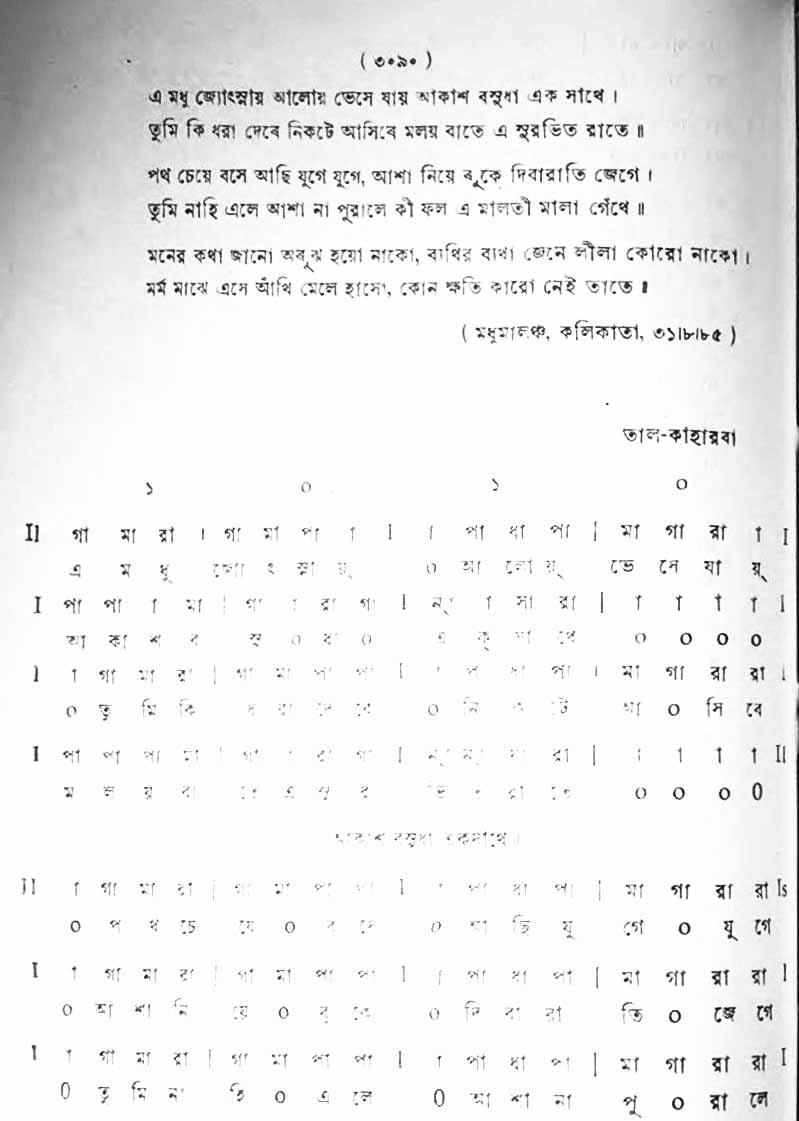 ( ৩০৯০ )
এ মধু জ্যোৎস্নায় আলোয় ভেসে যায় আকাশ বসুধা এক সাথে ।
তুমি কি ধরা দেবে নিকটে আসিবে মলয় বাতে এ সুরভিত রাতে ॥
পথ চেয়ে বসে আছি যুগে যুগে, আশা নিয়ে বুকে দিবারাতি জেগে ।
তুমি নাহি এলে আশা না পুরালে কী ফল এ মালতী মালা গেঁথে ॥
মনের কথা জানো অবুঝ হয়ো নাকো, ব্যথির ব্যথা জেনে লীলা কোরো নাকো ।
মর্ম মাঝে এসে আঁখি মেলে হাসো, কোন ক্ষতি কারো নেই তাতে ॥
( মধুমালঞ্চ, কলিকাতা, ৩১।৮।৮৫ )
তাল-কাহারবা
১ ০ ১ ০
II গা মা রা । গা মা পা া I া পা ধা পা | মা গা রা া I
এ ম ধু জ্যো ৎ স্না য়্ ০ আ লো য়্ ভে সে যা য়্
I পা পা া মা | গা া রা গা I ন্ া সা রা | া া া া I
আ কা শ ব সু ০ ধা ০ এ ক্ সা থে ০ ০ ০ ০
I া গা মা রা | গা মা পা পা I া প ধা পা । মা গা রা রা I
০ তু মি কি ধ রা দে বে ০ নি ক টে আ ০ সি বে
I পা পা পা মা | গা া রা গা I ন্া ন্া সা রা | া া া া II
ম ল য় বা তে এ সু র ভি ত রা তে ০ ০ ০ 0
আকাশ বসুধা একসাথে ।
II া গা মা রা | গা মা পা পা I া পা ধা পা | মা গা রা রা Is
০ প থ চে য়ে ০ ব সে ০ আ ছি যু গে ০ যু গে
I া গা মা রা | গা মা পা পা I া পা ধা পা | মা গা রা রা I
০ আ শা নি য়ে ০ বু কে ০ দি বা রা তি ০ জে গে
I া গা মা রা | গা মা পা পা I া পা ধা পা | মা গা রা রা I
0 তু মি না হি ০ এ লে 0 আ শা না পু ০ রা লে